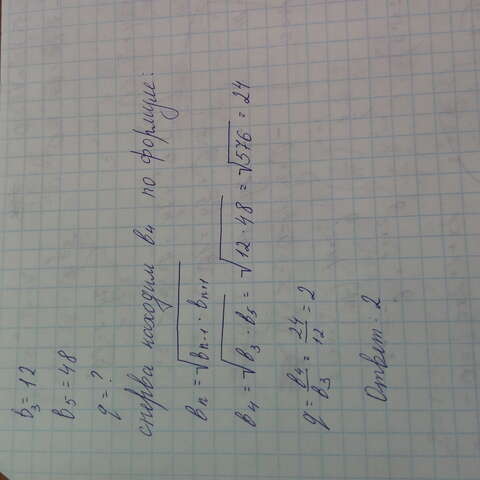 b₃ = 12
b₅ = 48
q = ?
сперва находим b₄ по формуле:
bₙ = √(bₙ₋₁ · bₙ₊₁)
b₄ = √(b₃ · b₅) = √(12 · 48) = √576 = 24
q = b₄/b₃ = 24/12 = 2
Ответ: 2